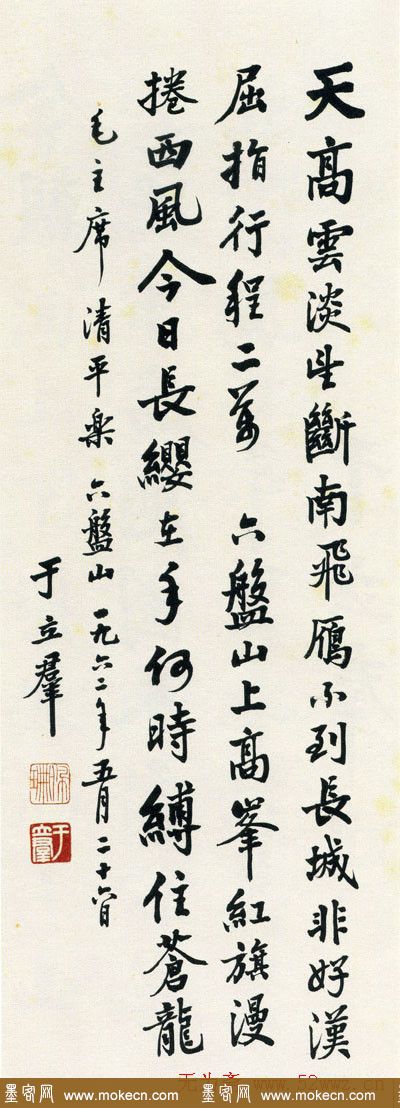 天高雲淡望斷南飛鴈不到長城非好漢
屈指行程二万 六盤山上高峯紅旗漫
捲西風今日長纓在手何時縛住蒼龍
毛主席清平楽六盤山一九六二年五月二十六日
于立羣
于立羣
墨客网 www.mokecn.com 墨客网 www.mokecn.com